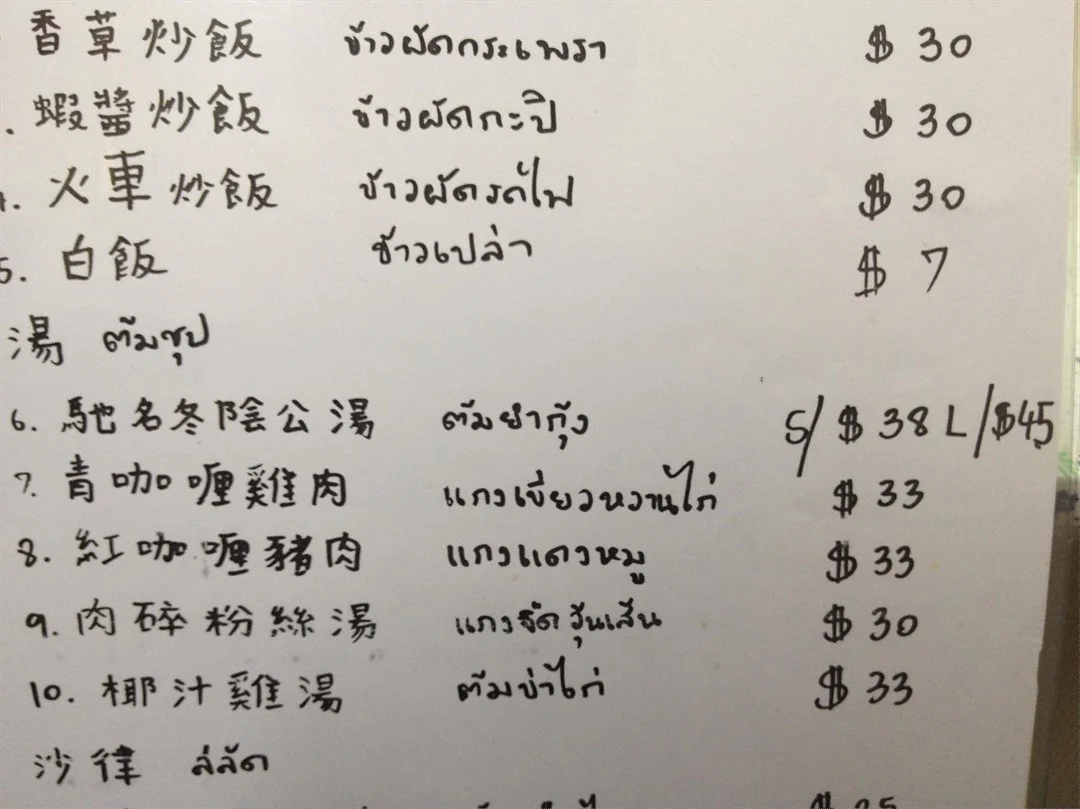 香草炒飯 ข้าวผัดกระเพรา $ 30
. 蝦醬炒飯 ข้าวผัดกะปิ $ 30
4. 火車炒飯 ข้าวผัดรถไฟ $ 30
5. 白飯 ข้าวเปล่า $ 7
湯 ต้มซุป
6. 馳名冬陰公湯 ต้มยำกุ้ง S/$ 38 L/$45
7. 青咖喱雞肉 แกงเขียวหวานไก่ $ 33
8. 紅咖喱豬肉 แกงแดงหมู $ 33
9. 肉碎粉絲湯 แกงจืดวุ้นเส้น $ 30
10. 椰汁雞湯 ต้มข่าไก่ $ 33
沙律 สลัด